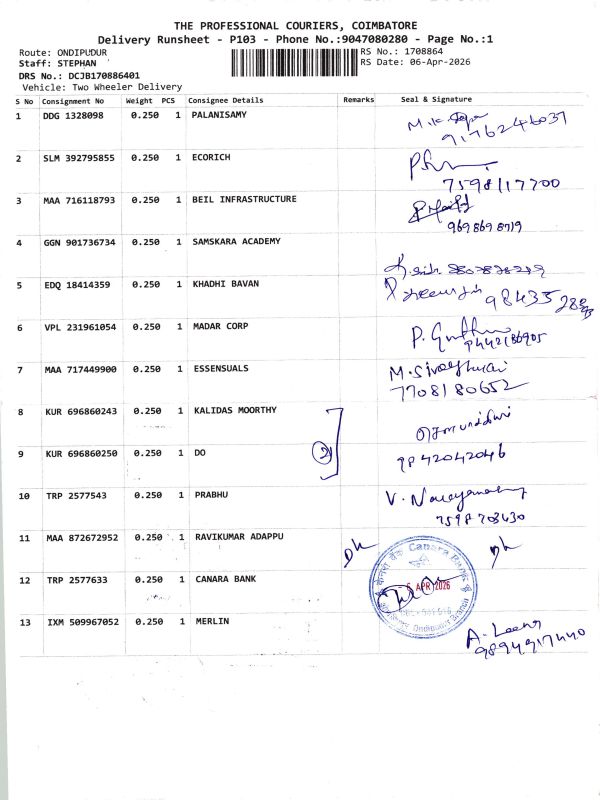 THE PROFESSIONAL COURIERS, COIMBATORE
Delivery Runsheet - P103 - Phone No.:9047080280 - Page No.:1
Route: ONDIPUDUR
RS No.: 1708864
Staff: STEPHAN
RS Date: 06-Apr-2026
DRS No.: DCJB170886401
Vehicle: Two Wheeler Delivery
S No Consignment No Weight PCS Consignee Details Remarks Seal & Signature
1 DDG 1328098 0.250 1 PALANISAMY
9176246037
2 SLM 392795855 0.250 1 ECORICH
7598117700
3 MAA 716118793 0.250 1 BEIL INFRASTRUCTURE
969869 8719
4 GGN 901736734 0.250 1 SAMSKARA ACADEMY
5 EDQ 18414359 0.250 1 KHADHI BAVAN
6 VPL 231961054 0.250 1 MADAR CORP
7 MAA 717449900 0.250 1 ESSENSUALS
7708180652
8 KUR 696860243 0.250 1 KALIDAS MOORTHY
9 KUR 696860250 0.250 1 DO
9842042046
10 TRP 2577543 0.250 1 PRABHU
7598703430
11 MAA 872672952 0.250 1 RAVIKUMAR ADAPPU
12 TRP 2577633 0.250 1 CANARA BANK
Canara Bank
APR 2026
13 IXM 509967052 0.250 1 MERLIN
A. Leena
9894917440